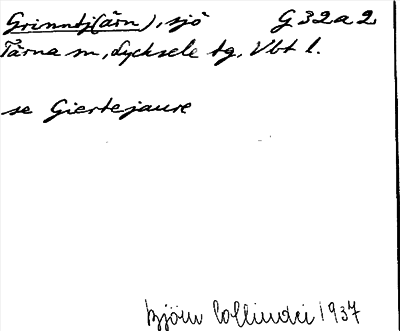 Grinntj(ärn), sjö G 32 a 2
Tärna sn, Lycksele tg, Vbt l.
se Giertejaure
Björn Collinder 1937